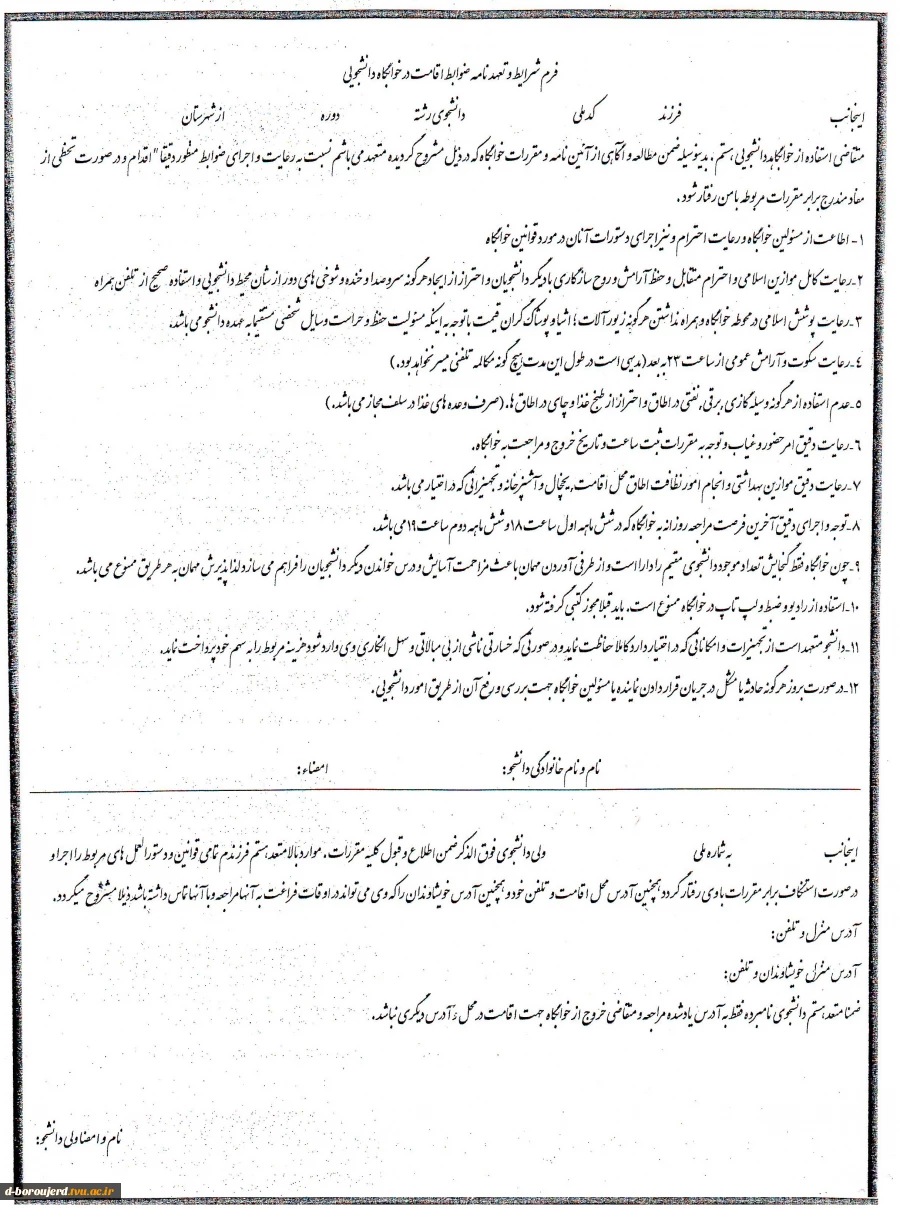 فرم شرایط و تعهد نامه ضوابط اقامت در خوابگاه دانشجویی
اینجانب فرزند کد ملی دانشجوی رشته دوره از شهرستان
متقاضی استفاده از خوابگاه دانشجویی هستم ، بدینوسیله ضمن مطالعه و آگاهی از آئین نامه و مقررات خوابگاه که در ذیل مشروح گردیده متعهد می باشم نسبت به رعایت و اجرای ضوابط منظور دقیقا" اقدام و در صورت تخطی از
مفاد مندرج برابر مقررات مربوطه با من رفتار شود .
۱- اطاعت از مسئولین خوابگاه و رعایت احترام و نیز اجرای دستورات آنان در مورد قوانین خوابگاه
۲-رعایت کامل موازین اسلامی و احترام متقابل و حفظ آرامش و روح سازگاری با دیگر دانشجویان و احتراز از ایجاد هرگونه سروصدا و خنده و شوخی های دور از شأن محیط دانشجویی و استفاده صحیح از تلفن همراه
۳-رعایت پوشش اسلامی در محوطه خوابگاه و همراه نداشتن هرگونه زیور آلات ؛ اشیا و پوشاک گران قیمت با توجه به اینکه مسئولیت حفظ و حراست وسایل شخصی مستقیما به عهده دانشجو می باشد.
۴-رعایت سکوت و آرامش عمومی از ساعت ۲۳ به بعد (بدیهی است در طول این مدت هیچ گونه مکالمه تلفنی میسر نخواهد بود.)
۵-عدم استفاده از هرگونه وسیله گازی ,برقی, نفتی در اطاق و احتراز از طبخ غذا و چای در اطاق ها. (صرف وعده های غذا در سلف مجاز می باشد.)
۶-رعایت دقیق امر حضور و غیاب و توجه به مقررات ثبت ساعت و تاریخ خروج و مراجعت به خوابگاه.
۷-رعایت دقیق موازین بهداشتی و انجام امور نظافت اطاق محل اقامت, یخچال و آشپزخانه و تجهیزاتی که در اختیار می باشد.
۸-توجه و اجرای دقیق آخرین فرصت مراجعه روزانه به خوابگاه که در شش ماهه اول ساعت ۱۸ و شش ماهه دوم ساعت ۱۹ می باشد.
۹-چون خوابگاه فقط گنجایش تعداد موجود دانشجوی مقیم را دارا است و از طرفی آوردن مهمان باعث مزاحمت آسایش و درس خواندن دیگر دانشجویان را فراهم می سازد لذا پذیرش مهمان به هر طریق ممنوع می باشد.
۱۰-استفاده از رادیو و ضبط و لپ تاپ در خوابگاه ممنوع است. باید قبلا مجوز کتبی گرفته شود.
۱۱-دانشجو متعهد است از تجهیزات و امکاناتی که در اختیار دارد کاملا حفاظت نماید و در صورتی که خسارتی ناشی از بی مبالاتی و سهل انگاری وی وارد شود هزینه مربوط را به سهم خود پرداخت نماید.
۱۲-در صورت بروز هرگونه حادثه یا مشکل در جریان قرار دادن نماینده یا مسئولین خوابگاه جهت بررسی و رفع آن از طریق امور دانشجویی.
نام و نام خانوادگی دانشجو: امضاء:
اینجانب به شماره ملی ولی دانشجوی فوق الذکر ضمن اطلاع و قبول کلیه مقررات. موارد بالا متعهد هستم فرزندم تمامی قوانین و دستورالعمل های مربوط را اجرا و
در صورت استنکاف برابر مقررات با وی رفتار گردد همچنین آدرس محل اقامت و تلفن خود و همچنین آدرس خویشاوندان را که وی می تواند در اوقات فراغت به آنها مراجعه و با آنها تماس داشته باشد ذیلا مشروح میگردد.
آدرس منزل و تلفن:
آدرس منزل خویشاوندان و تلفن:
ضمنا متعهد هستم دانشجوی نامبرده فقط به آدرس یاد شده مراجعه و متقاضی خروج از خوابگاه جهت اقامت در محل و آدرس دیگری نباشد.
نام و امضا ولی دانشجو:
d-boroujerd.tvu.ac.ir